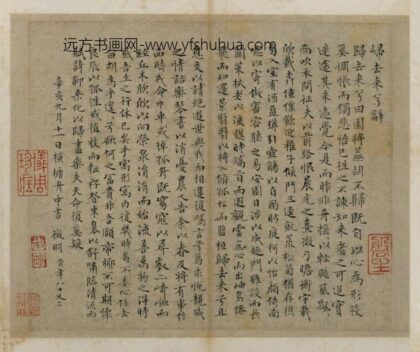 远方书画网-www.yfshuhua.com
歸去來兮辭
歸去來兮田園將蕪胡不歸既自以心為形役
奚惆悵而獨悲悟已往之不諫知來者之可追實
迷途其未遠覺今是而昨非舟搖搖以輕颺風飄飄
而吹衣問征夫以前路恨晨光之熹微乃瞻衡宇載
欣載奔僮僕歡迎稚子候門三逕就荒松菊猶存攜
幼入室有酒盈樽引壺觴以自酌眄庭柯以怡顏倚南
窗以寄傲審容膝之易安園日涉以成趣門雖設而長
關策扶老以流憩時矯首而遐觀雲無心而出岫鳥倦
飛而知還景翳翳以將入撫孤松而盤桓歸去來兮且
息交以絕遊世與我而相違復駕言兮焉求悅親戚
之情話樂琴書以消憂農人告余以春及將有事於
西疇或命巾車或棹孤舟既窈窕以尋壑亦崎嶇而
經丘木欣欣以向榮泉涓涓而始流善萬物之得時
感吾生之行休已矣乎寓形宇內復幾時曷不委心任去
留胡為乎遑遑兮欲何之富貴非吾願帝鄉不可期懷
良辰以孤往或植杖而耘耔登東皋以舒嘯臨清流而
賦詩聊乘化以歸盡樂夫天命復奚疑
辛亥九月十一日橫塘舟中書 徵明 年八十又二